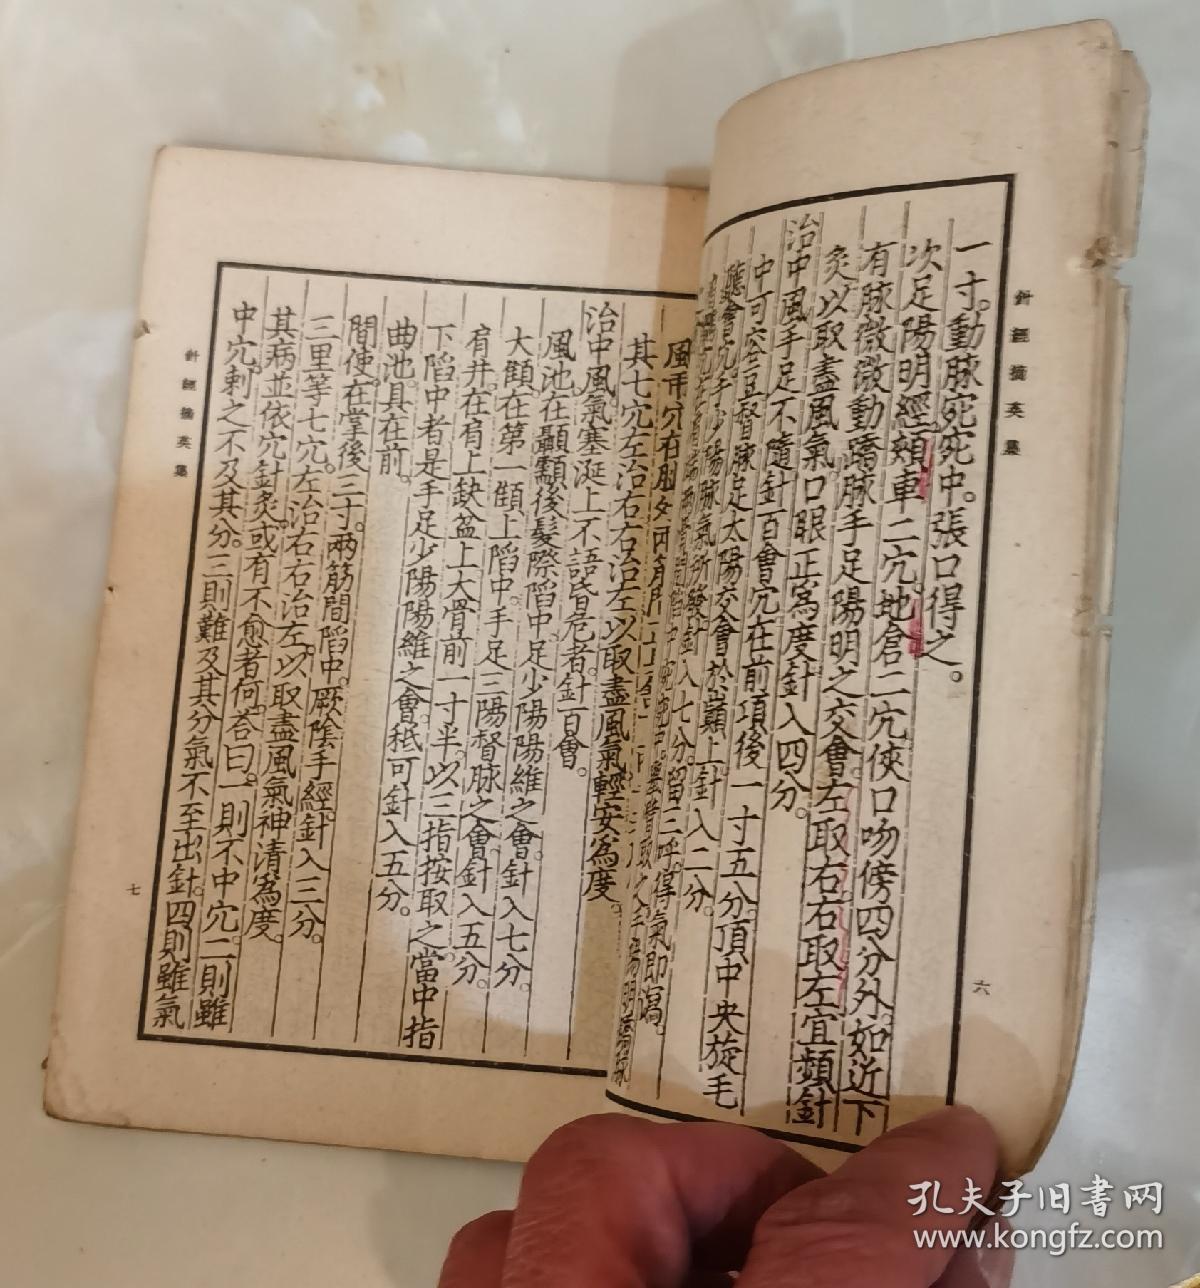 針經摘英集
六
一寸。動脉宛宛中。張口得之。
次足陽明經頰車二穴。地倉二穴俠口吻傍四分外。如近下
有脉微微動蹻脉手足陽明之交會。左取右右取左宜頻針
灸以取盡風氣。口眼正爲度針入四分。
治中風手足不隨針百會穴。在前項後一寸五分。頂中央旋毛
中可容豆督脉足太陽交會於巓上。針入二分。
聽會穴手少陽脉氣所發針入七分。留三呼。得氣即瀉。
其七穴左治右右治左以取盡風氣輕安爲度。
治中風氣塞涎上不語昏危者。針百會。
風池在顳顬後髮際陷中足少陽陽維之會。針入七分。
大顀在第一顀上陷中。手足三陽督脉之會針入五分。
肩井。在肩上缺盆上大骨前一寸半。以三指按取之當中指
下陷中者是手足少陽陽維之會。秖可針入五分。
曲池。具在前。
間使。在掌後三寸。兩筋間陷中。厥陰手經。針入三分。
三里等七穴。左治右右治左。以取盡風氣神清爲度。
其病並依穴針灸。或有不愈者何。荅曰。一則不中穴。二則雖
中穴。刺之不及其分。三則雖及其分氣不至出針。四則雖氣
針經摘英集
七
孔夫子旧书网
www.kongfz.com